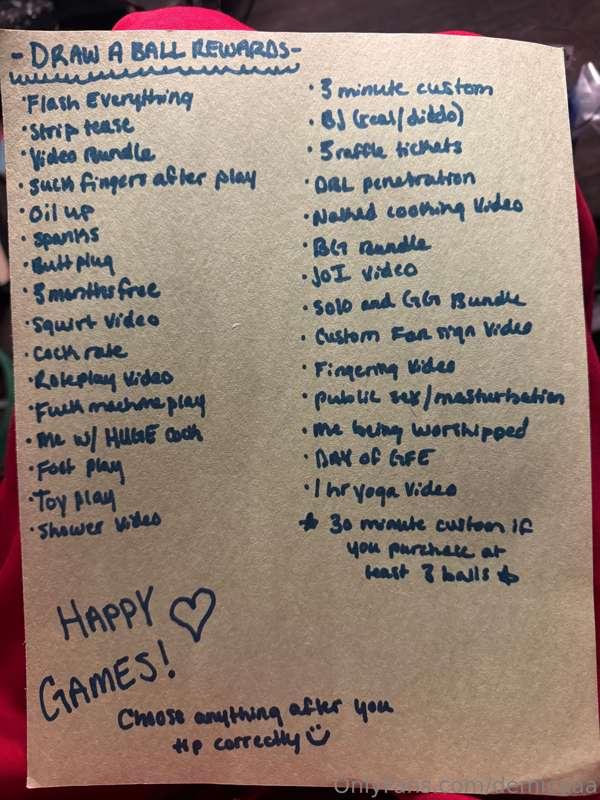 - DRAW A BALL REWARDS -
· Flash Everything
· Strip tease
· Video Bundle
· Suck fingers after play
· Oil up
· Spanks
· Butt plug
· 3 months free
· Squirt Video
· Cock rate
· Roleplay Video
· Fuck machine play
· Me w/ HUGE cock
· Foot play
· Toy play
· Shower Video
· 3 minute custom
· BJ (real/dildo)
· 5 raffle tickets
· DBL penetration
· Naked cooking Video
· BG Bundle
· JOI Video
· Solo and GG Bundle
· Custom Fan sign Video
· Fingering Video
· public sex/masturbation
· me being worshipped
· DAY of GFE
· 1 hr yoga Video
☆ 30 minute custom if
you purchase at
least 3 balls ☆
HAPPY ♡
GAMES!
Choose anything after you
tip correctly ☺